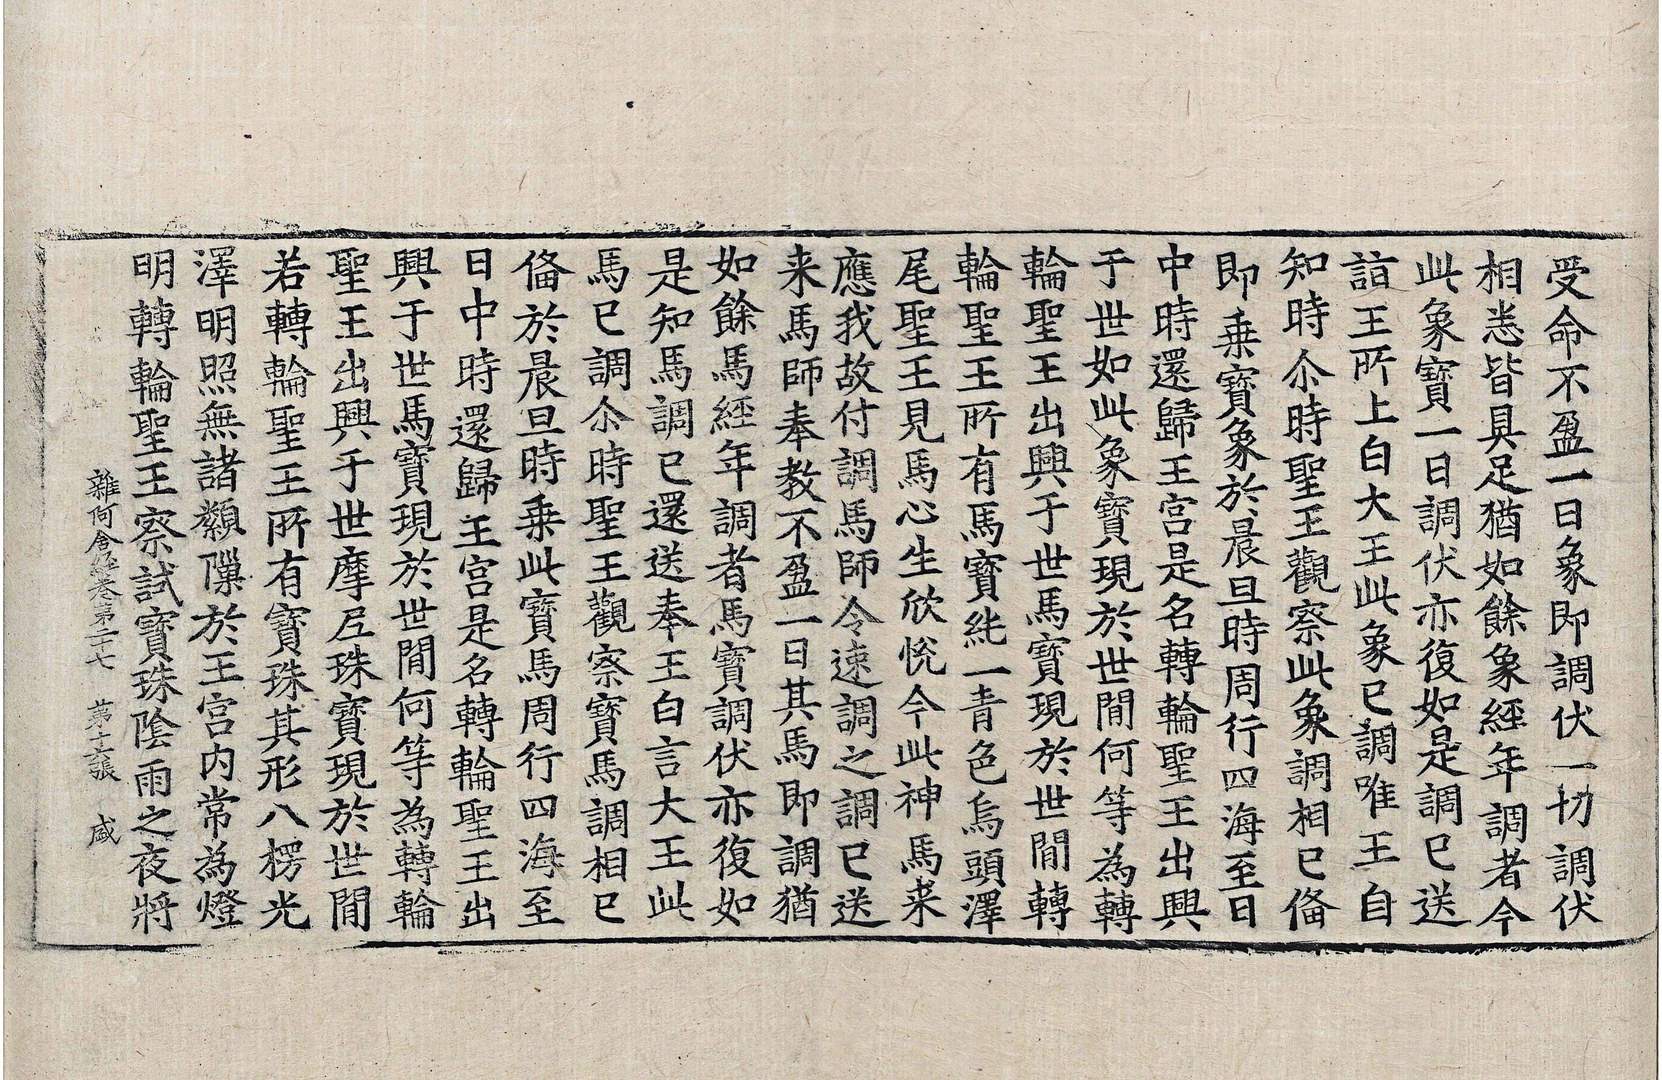 受命不盈一日象即調伏一切調伏
相悉皆具足猶如餘象經年調者今
此象寶一日調伏亦復如是調已送
詣王所上白大王此象已調唯王自
知時尒時聖王觀察此象調相已俻
即乗寶象於晨旦時周行四海至日
中時還歸王宮是名轉輪聖王出興
于世如此象寶現於世間何等為轉
輪聖王出興于世馬寶現於世間轉
輪聖王所有馬寶純一青色烏頭澤
尾聖王見馬心生欣悅今此神馬来
應我故付調馬師令速調之調已送
来馬師奉教不盈一日其馬即調猶
如餘馬經年調者馬寶調伏亦復如
是知馬調已還送奉王白言大王此
馬已調尒時聖王觀察寶馬調相已
俻於晨旦時乗此寶馬周行四海至
日中時還歸王宮是名轉輪聖王出
興于世馬寶現於世間何等為轉輪
聖王出興于世摩尼珠寶現於世間
若轉輪聖王所有寶珠其形八楞光
澤明照無諸纇隟於王宮内常為燈
明轉輪聖王察試寶珠陰雨之夜將
雜阿含經卷第二十七 第十六張 盛